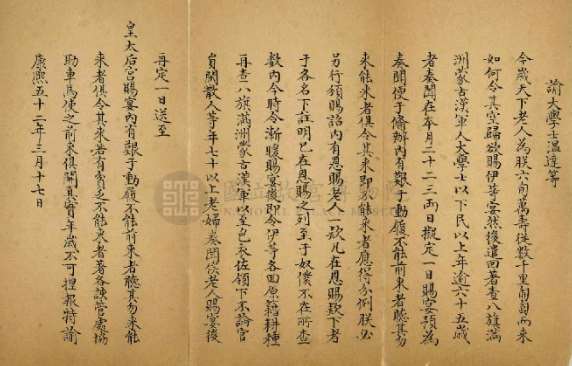 諭大學士溫達等
今歲天下老人為朕六旬萬壽從數千里匍匐而來
如何令其空歸欲賜伊等宴然後遣回著查八旗滿
洲蒙古漢軍人大學士以下民以上年逾六十五歲
者奏聞在本月二十二三兩日擬定一日賜宴預為
奏聞便于備辦內有艱于動履不能前來者聽其勿
來能來者俱令其來即不能來者應得分例朕必
另行頒賜諂內有恩賜老人一欵凡在恩賜欵下者
于各名下註明已在恩賜之列至于奴僕不在所查之
數內今時令漸暖賜宴後即令伊等各回原籍耕種
再查八旗滿洲蒙古漢軍以至包衣佐領下不論官
員閒散人等年七十以上老婦奏聞俟老人賜宴後
再定一日送至
皇太后宮賜宴內有艱于動履不能前來者聽其勿來能
來者俱令其來若有貧乏不能來者著各該管處協
助車馬使之前來俱開具實年歲不可捏報特諭
康熙五十二年三月十七日